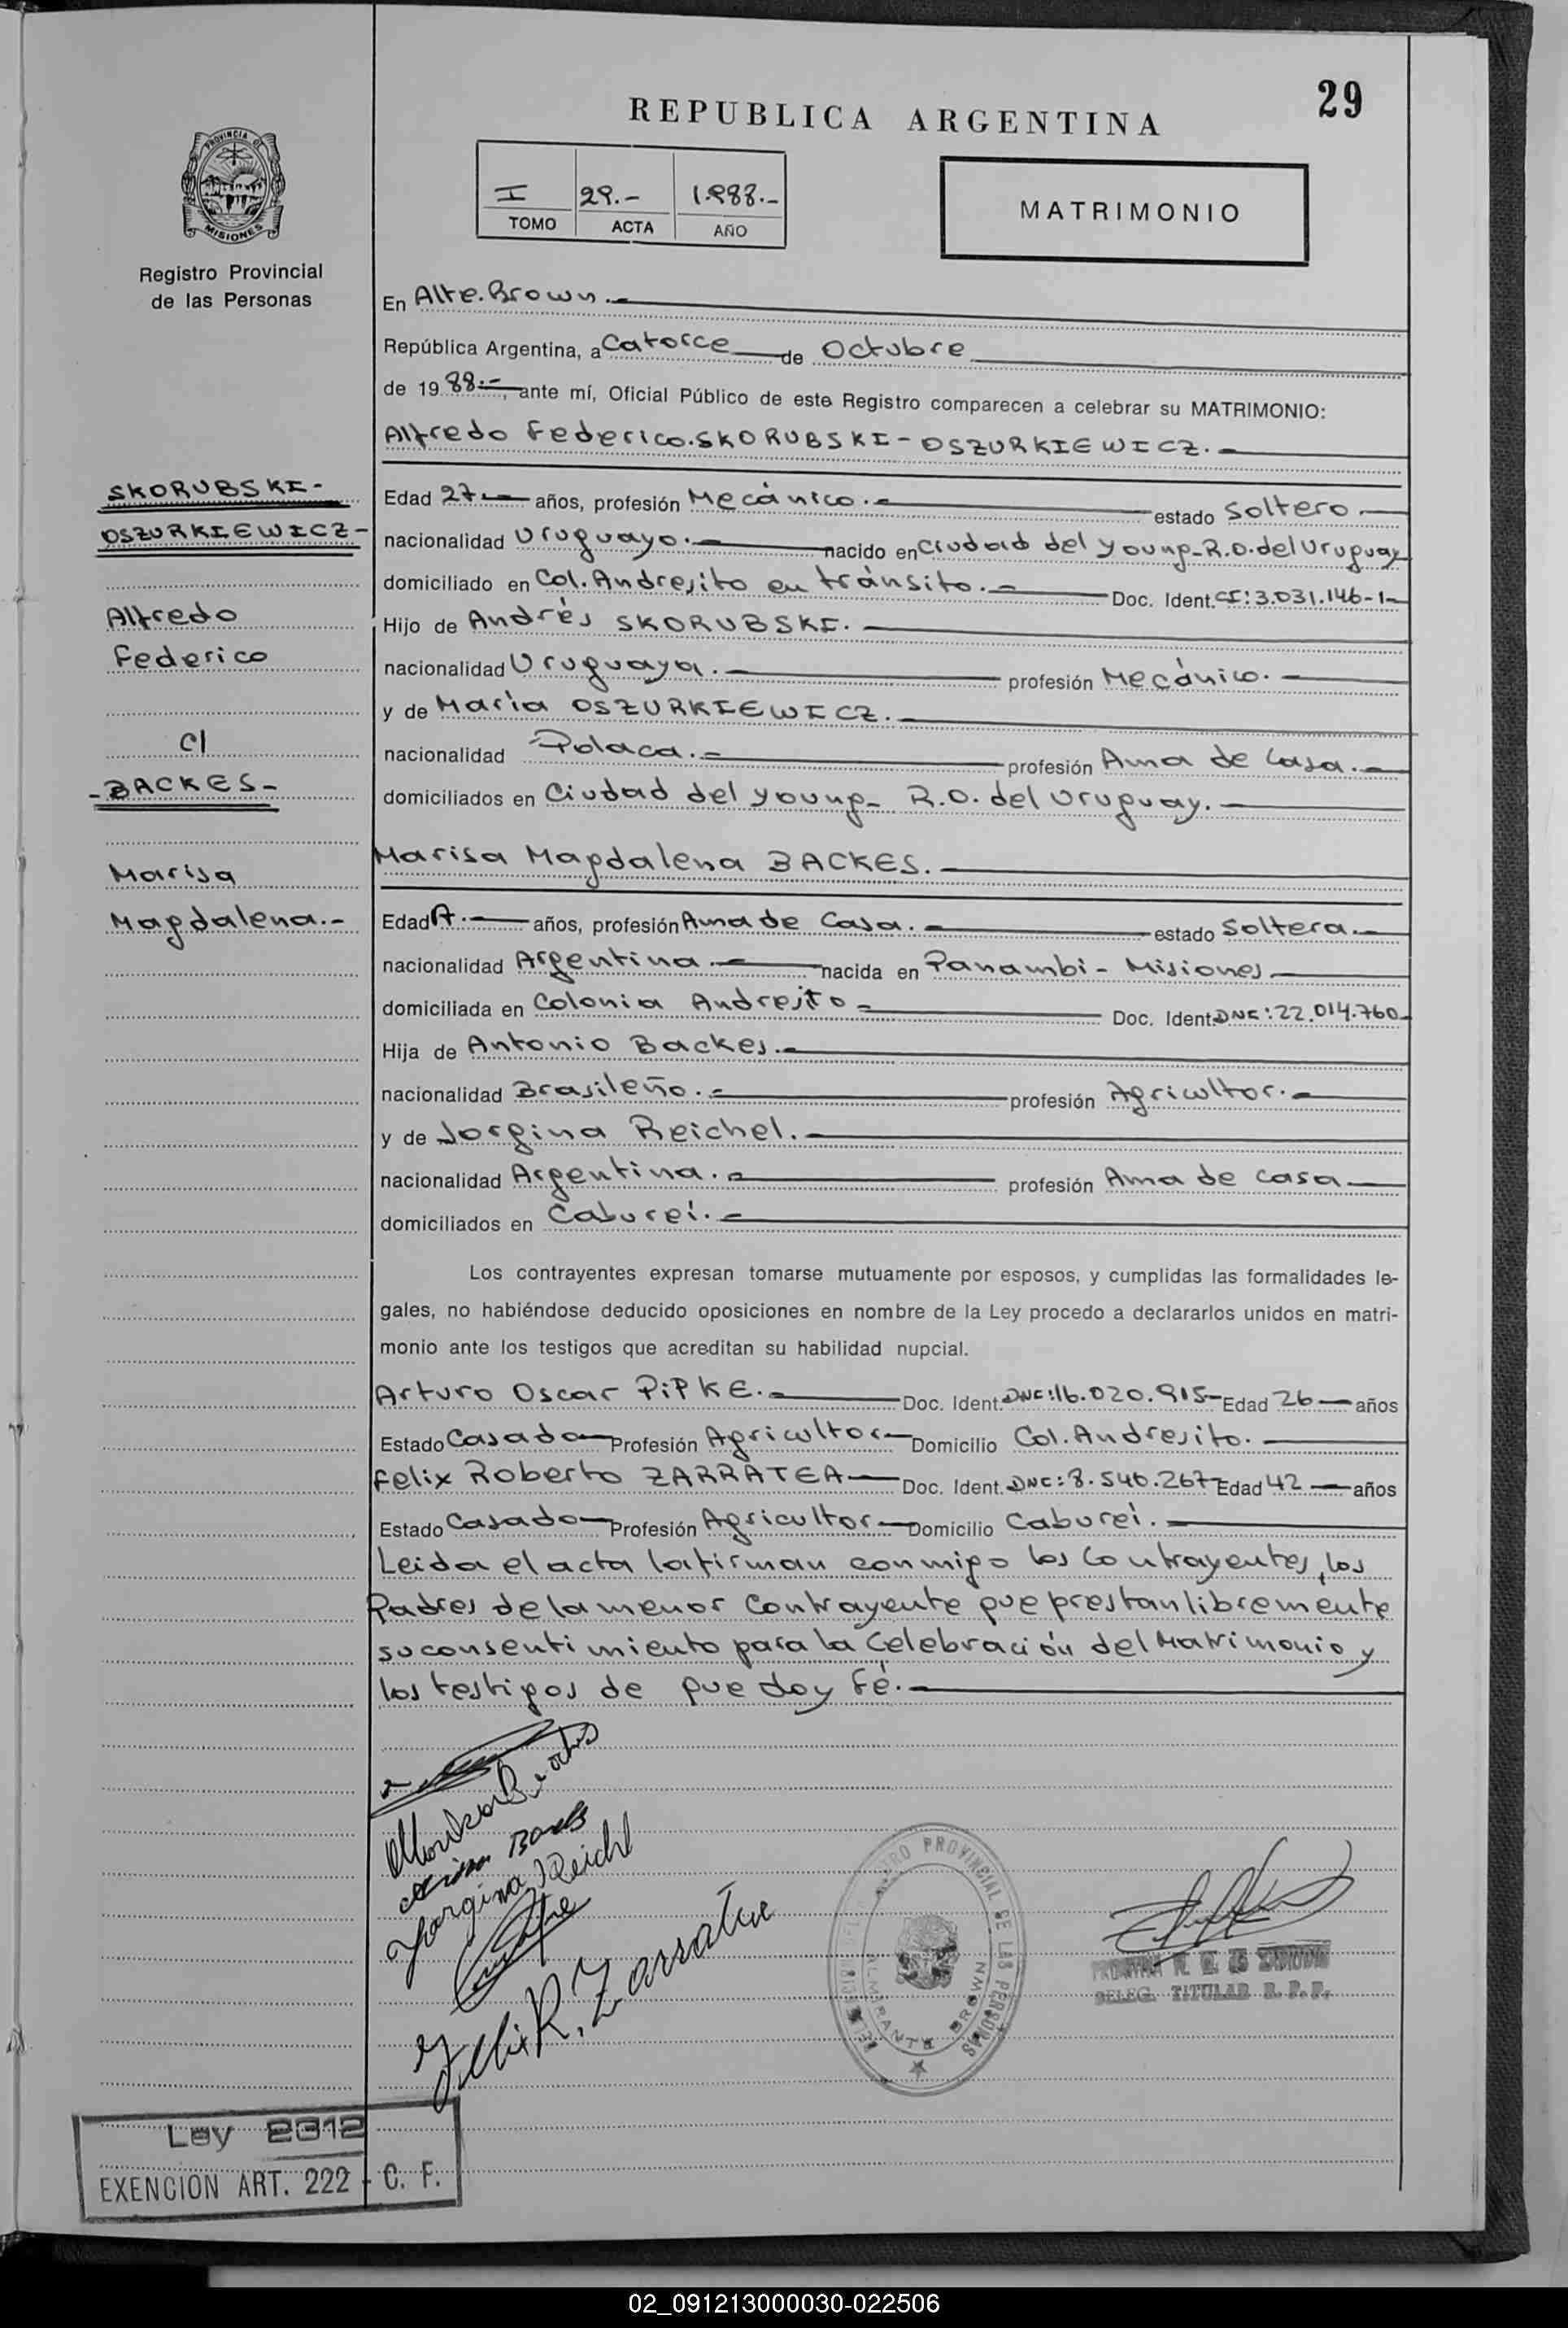 29
REPUBLICA ARGENTINA
PROVINCIA DE
MISIONES
Registro Provincial
de las Personas
I 29.- 1.988.-
TOMO ACTA AÑO
MATRIMONIO
En Alte. Brown.-
República Argentina, a Catorce de Octubre
de 19 88.-, ante mí, Oficial Público de este Registro comparecen a celebrar su MATRIMONIO:
Alfredo Federico SKORUBSKI - OSZURKIEWICZ.-
SKORUBSKI-
OSZURKIEWICZ-
Alfredo
Federico
c/
-BACKES-
Marisa
Magdalena.-
Edad 27.- años, profesión Mecánico.- estado Soltero.-
nacionalidad Uruguayo.- nacido en Ciudad del Young-R.O.del Uruguay
domiciliado en Col. Andresito en tránsito.- Doc. Ident. CI: 3.031.146-1-
Hijo de Andrés SKORUBSKI.-
nacionalidad Uruguaya.- profesión Mecánico.-
y de María OSZURKIEWICZ.-
nacionalidad Polaca.- profesión Ama de Casa.-
domiciliados en Ciudad del Young- R.O. del Uruguay.-
Marisa Magdalena BACKES.-
Edad .- años, profesión Ama de Casa.- estado Soltera.-
nacionalidad Argentina.- nacida en Panambi- Misiones
domiciliada en Colonia Andresito- Doc. Ident. DNI: 22.014.760-
Hija de Antonio Backes.-
nacionalidad Brasileño.- profesión Agricultor.-
y de Jorgina Reichel.-
nacionalidad Argentina.- profesión Ama de casa
domiciliados en Cabureí.-
Los contrayentes expresan tomarse mutuamente por esposos, y cumplidas las formalidades le-
gales, no habiéndose deducido oposiciones en nombre de la Ley procedo a declararlos unidos en matri-
monio ante los testigos que acreditan su habilidad nupcial.
Arturo Oscar PiPKE.- Doc. Ident. DNI: 16.020.915- Edad 26 años
Estado Casado Profesión Agricultor- Domicilio Col. Andresito.-
Felix Roberto ZARRATEA- Doc. Ident. DNI: 8.546.267 Edad 42 años
Estado Casado Profesión Agricultor- Domicilio Cabureí.-
Leida el acta la firman conmigo los Contrayentes, los
Padres de la menor Contrayente que prestan libremente
su consentimiento para la Celebración del Matrimonio y
los testigos de que doy fé.-
Jorgina Reichl
Felix R. Zarratea
PROVINCIAL DE LAS PERSONAS
ALMIRANTE BROWN
DELEG. TITULAR R. P. P.
Ley 2312
EXENCION ART. 222 - C. F.
02_091213000030-022506